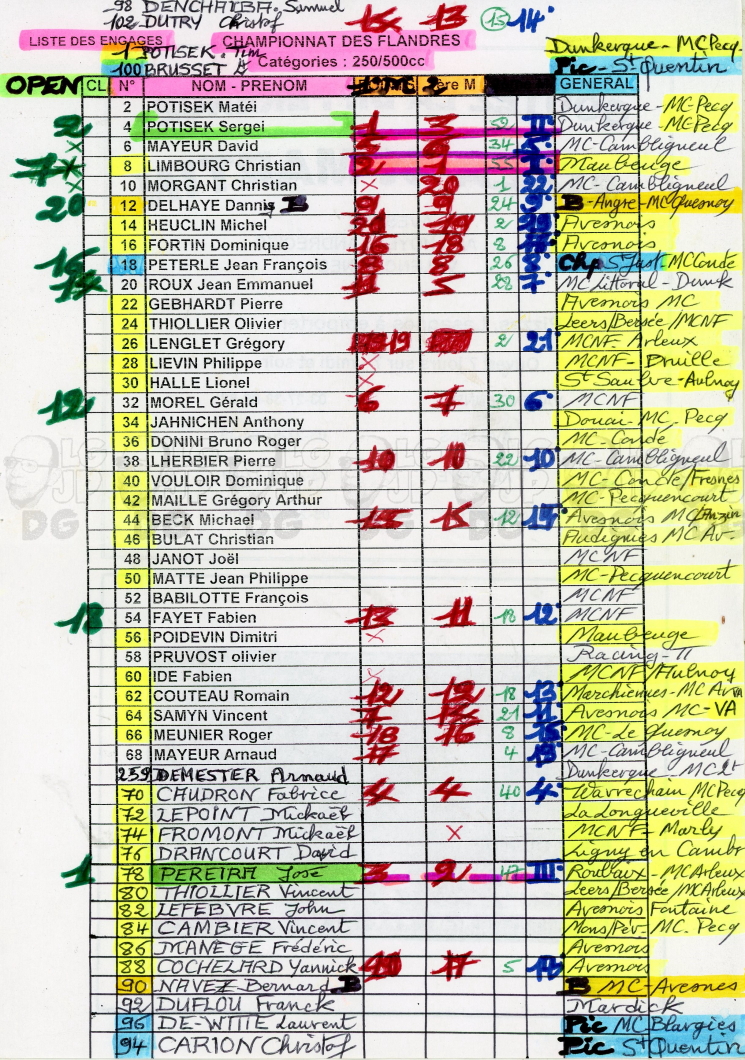 98 DENCHAIBA. Samuel 15 13 13 14
102 DUTRY Christof
LISTE DES ENGAGES CHAMPIONNAT DES FLANDRES
1 POTISEK. Tim Dunkerque - MC Pecq
100 BRUSSET Catégories : 250/500cc Pic - St Quentin
OPEN CL N° NOM - PRENOM 2ère M GENERAL
2 POTISEK Matéi Dunkerque - MC Pecq
2 4 POTISEK Sergei 1 3 52 II Dunkerque - MC Pecq
6 MAYEUR David 5 6 34 5 MC-Cambligneul
7 8 LIMBOURG Christian 2 1 55 I Maubeuge
10 MORGANT Christian X 20 1 22 MC-Cambligneul
20 12 DELHAYE Dannis B 9 9 24 9 B-Angre-MC Quesnoy
14 HEUCLIN Michel 20 19 2 20 Avesnois
16 FORTIN Dominique 16 18 8 Avesnois
16 18 PETERLE Jean François 8 8 26 8 Chp St Just MC Condé
14 20 ROUX Jean Emmanuel 5 28 7 MC Littoral - Dunk
22 GEBHARDT Pierre Avesnois MC
24 THIOLLIER Olivier Leers/Bersée/MCNF
26 LENGLET Grégory 19 2 21 MCNF-Arleux
28 LIEVIN Philippe X MCNF-Bruille
30 HALLE Lionel X St Saulve-Aulnoy
12 32 MOREL Gérald 6 7 30 6 MCNF
34 JAHNICHEN Anthony Douai-MC. Pecq
36 DONINI Bruno Roger MC-Condé
38 LHERBIER Pierre 10 10 22 10 MC-Cambligneul
40 VOULOIR Dominique MC-Condé/Fresnes
42 MAILLE Grégory Arthur MC-Pecquencourt
44 BECK Michael 15 15 12 Avesnois MC Anzin
46 BULAT Christian Audignies MC Av-
48 JANOT Joël MCNF
50 MATTE Jean Philippe MC-Pecquencourt
52 BABILOTTE François MCNF
18 54 FAYET Fabien 13 11 18 12 MCNF
56 POIDEVIN Dimitri X Maubeuge
58 PRUVOST olivier Racing-II
60 IDE Fabien X MCNF/Aulnoy
62 COUTEAU Romain 12 12 18 13 Marchiennes-MC Av VA
64 SAMYN Vincent 7 21 11 Avesnois MC-VA
66 MEUNIER Roger 18 16 8 15 MC-Le Quesnoy
68 MAYEUR Arnaud 17 4 19 MC-Cambligneul
259 DEMESTER Arnaud Dunkerque - MC Lt
70 CHUDRON Fabrice 4 4 40 4 Warrechain MC Pecq
72 LEPOINT Mickaël La Longueville
74 FROMONT Mickaël X MCNF-Marly
76 DRANCOURT David Ligny en Cambr
1 78 PEREIRA José 3 2 47 III Roubaix-MC Arleux
80 THIOLLIER Vincent Leers/Bersée/MC Arleux
82 LEFEBVRE John Avesnois Fontaine
84 CAMBIER Vincent Mons/Pév-MC. Pecq
86 MANEGE Frédéric Avesnois
88 COCHELARD Yannick 17 5 18 Avesnois
90 NAVEZ Bernard B B MC-Avesnes
92 DUFLOU Franck Mardick
96 DE-WITTE Laurent Pic MC Blargies
94 CARION Christof Pic St Quentin
LG
JP
DG